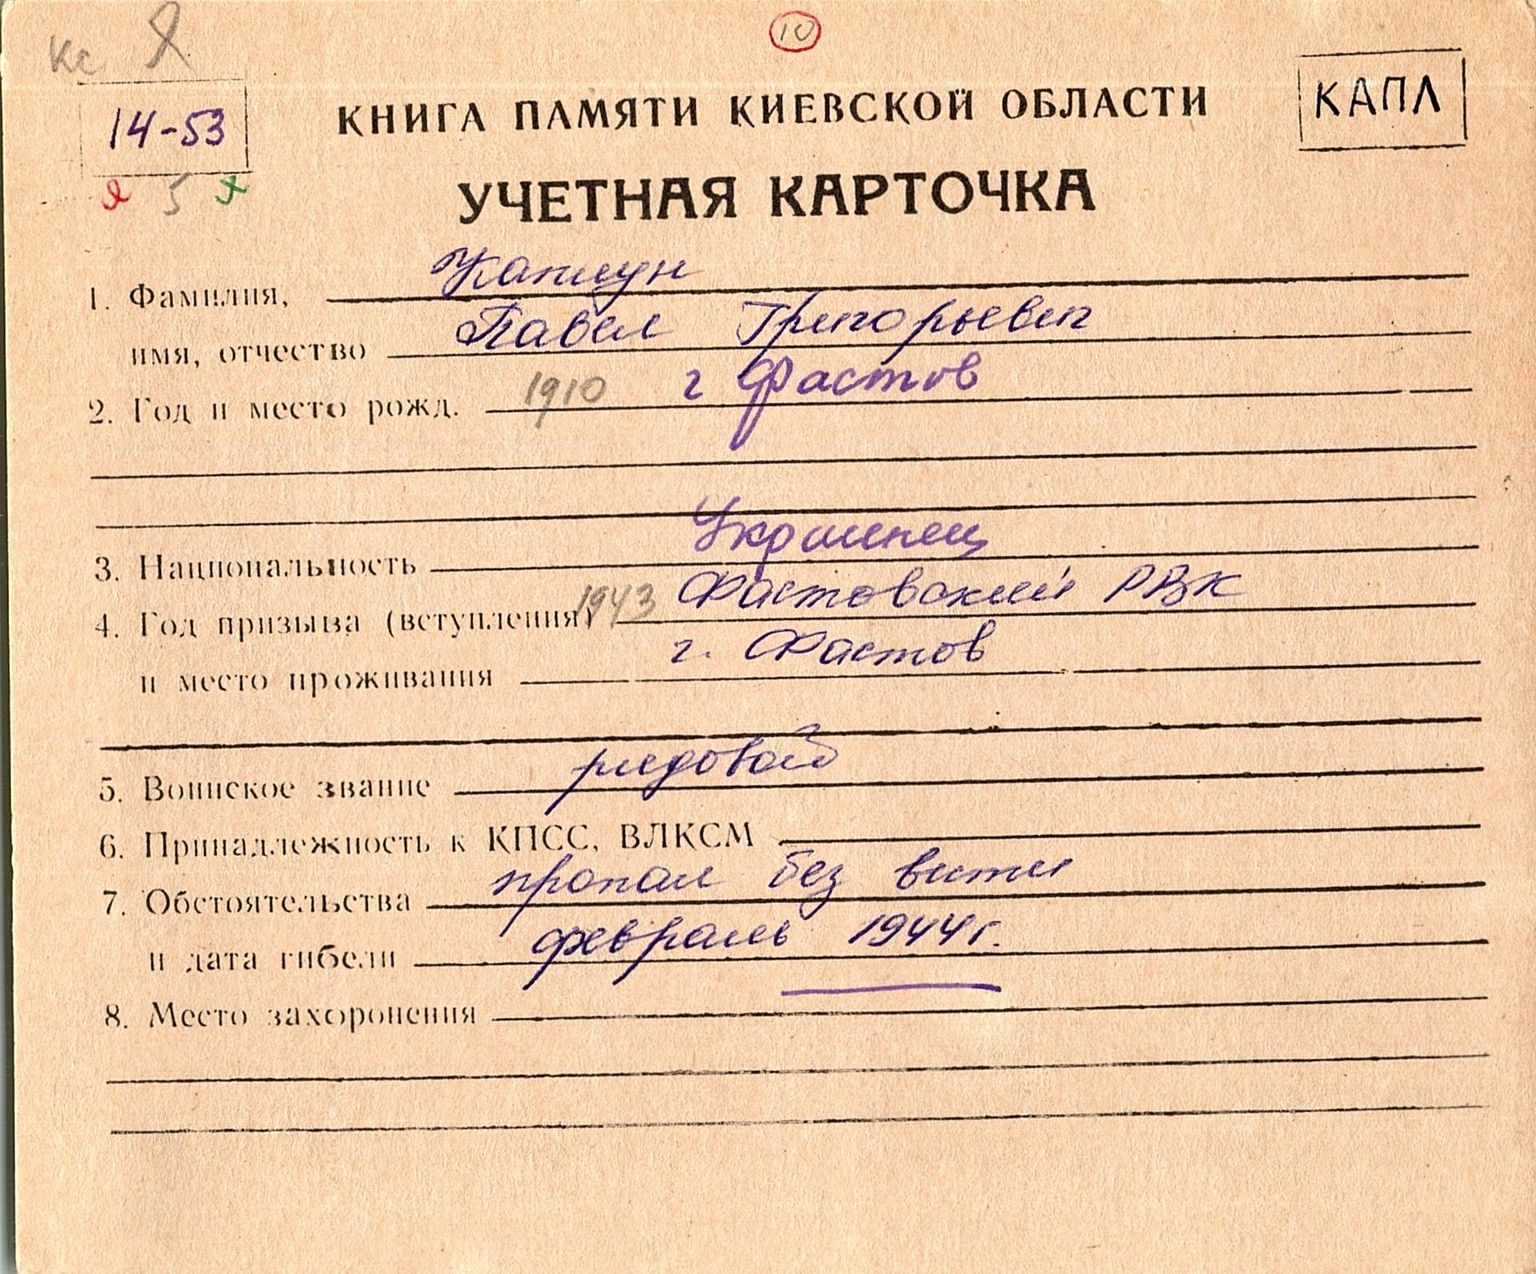 10
14-53
КНИГА ПАМЯТИ КИЕВСКОЙ ОБЛАСТИ
КАПЛ
5
УЧЕТНАЯ КАРТОЧКА
1. Фамилия, Каплун
имя, отчество Павел Григорьевич
2. Год и место рожд. 1910 г Фастов
3. Национальность Украинец
4. Год призыва (вступления) 1943 Фастовский РВК
и место проживания г. Фастов
5. Воинское звание рядовой
6. Принадлежность к КПСС, ВЛКСМ
7. Обстоятельства пропал без вести
и дата гибели февраль 1944 г.
8. Место захоронения